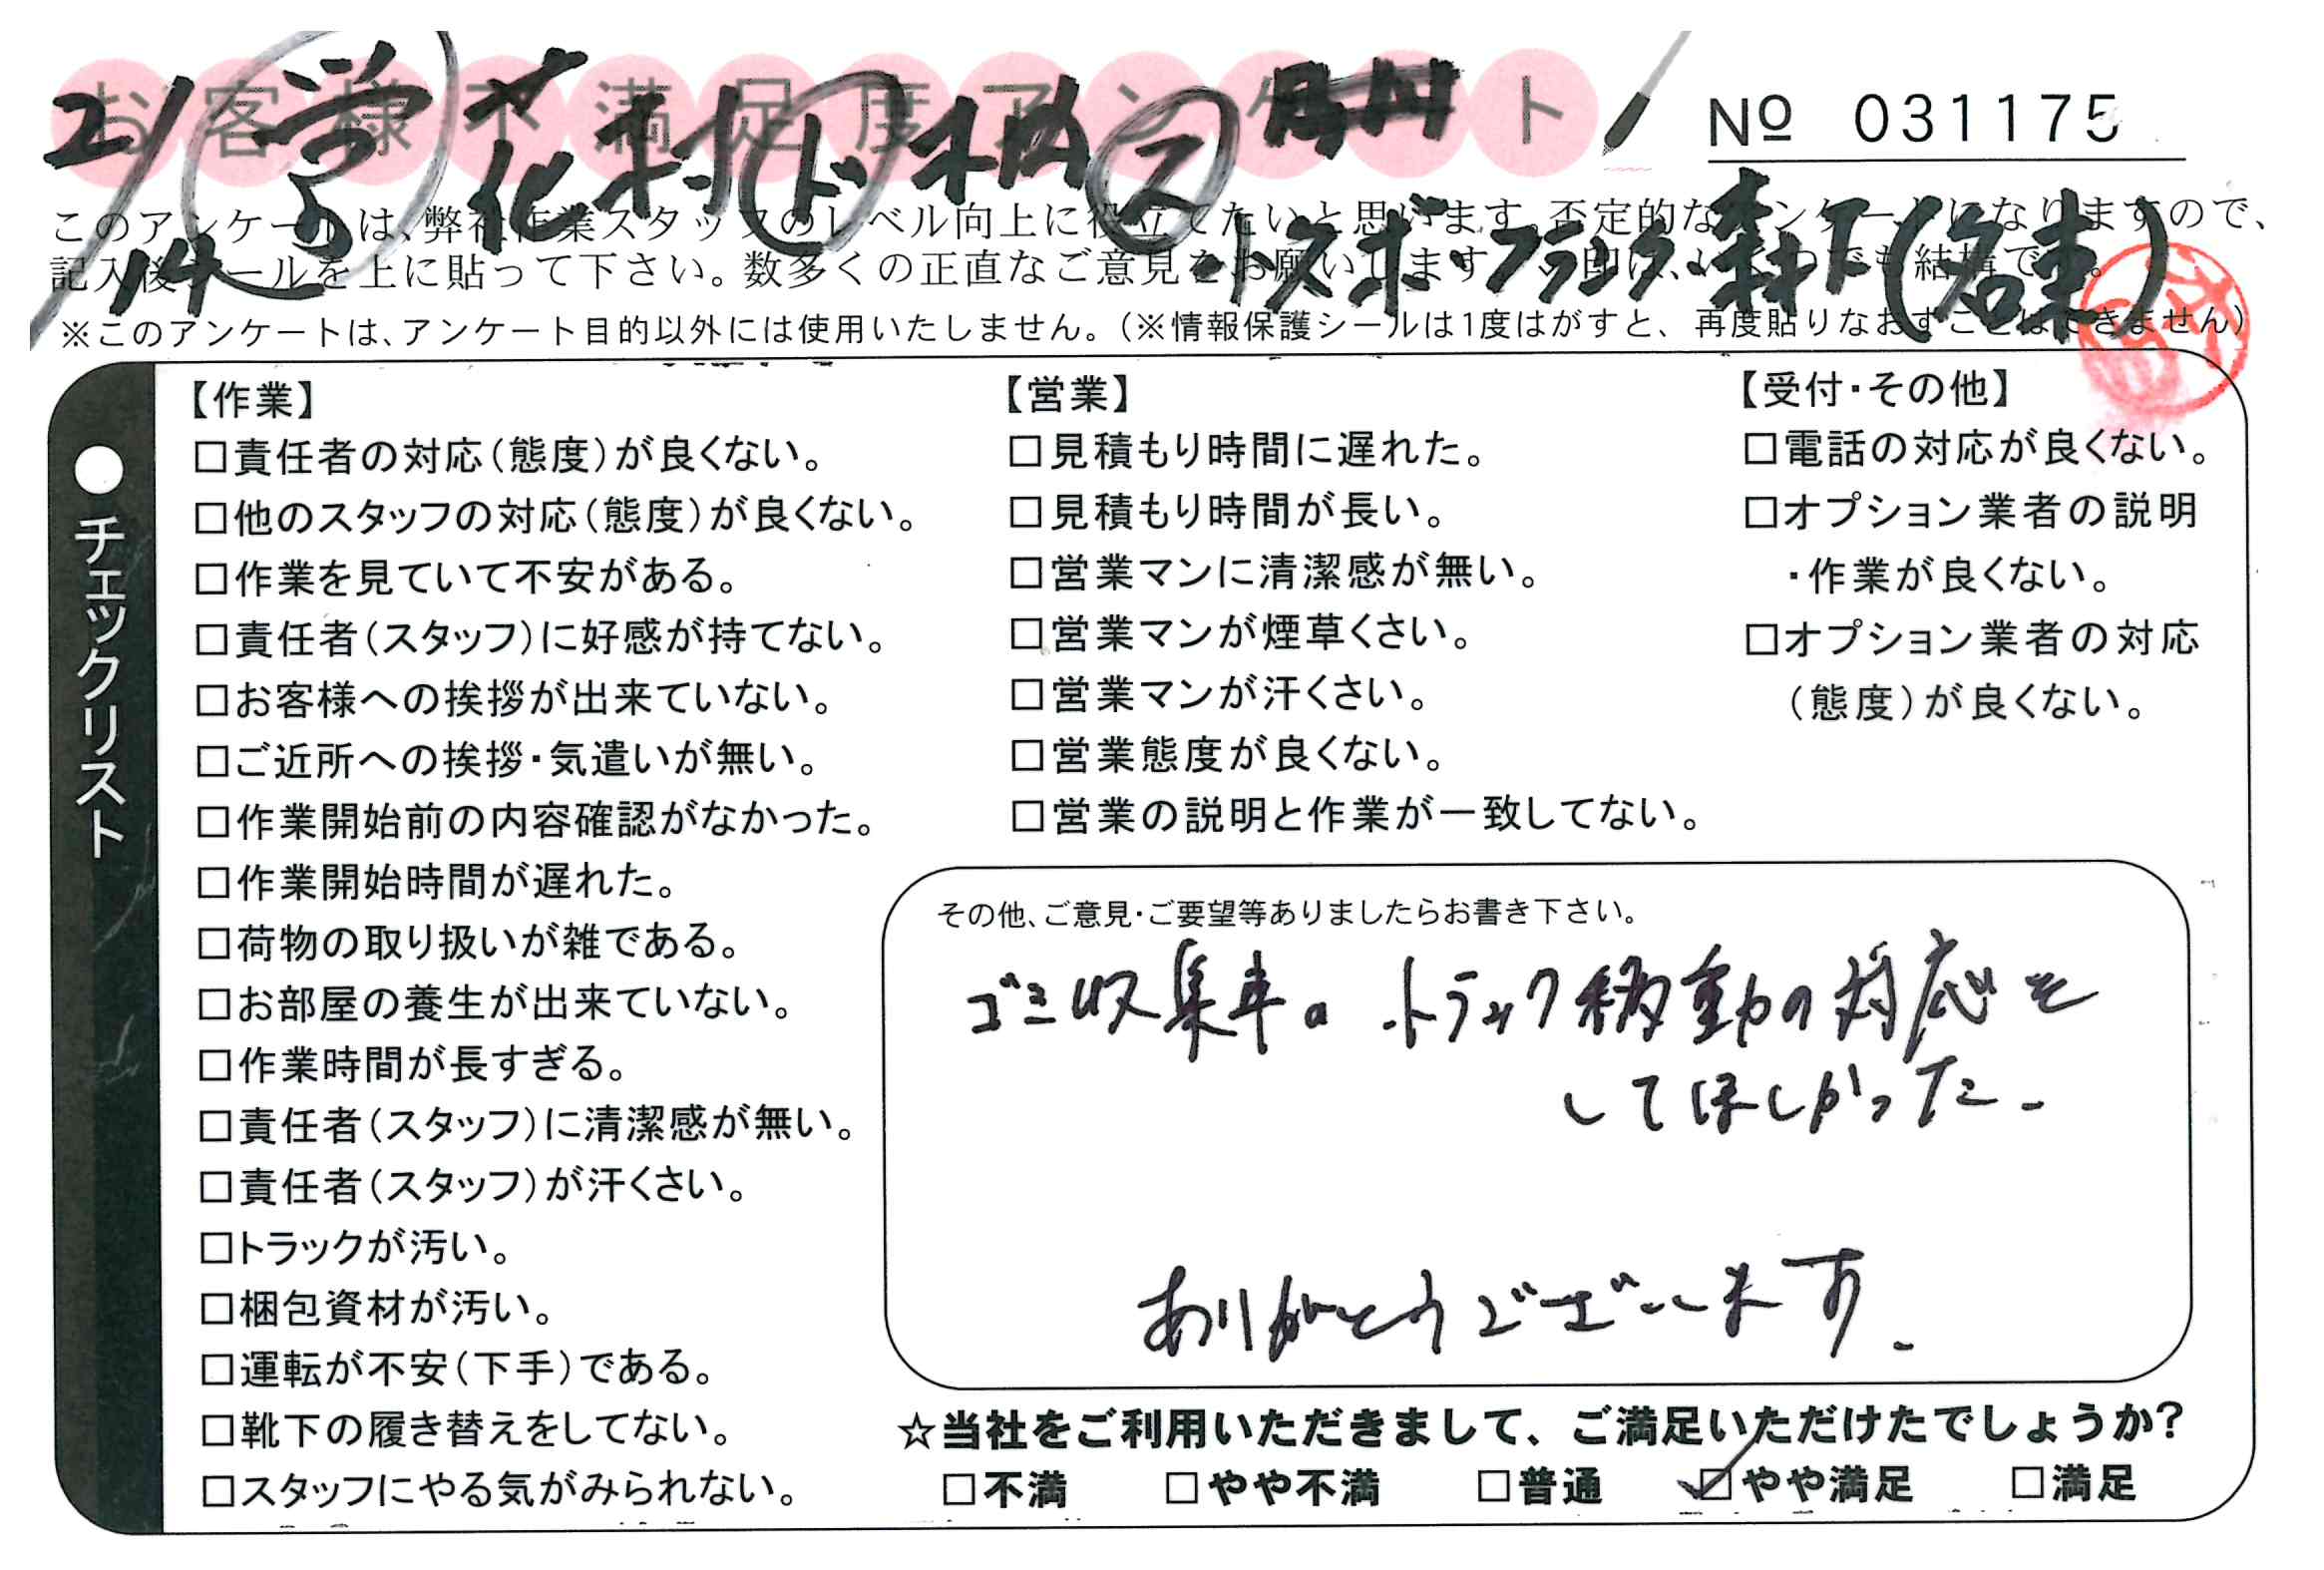 お客様不満足度アンケート
No 031175
2/14 学 花村 ド 楓 ス
トスボ・フランク・森下(名東)
このアンケートは、弊社作業スタッフのレベル向上に役立てたいと思います。否定的なアンケートになりますので、
記入後シールを上に貼って下さい。数多くの正直なご意見をお願いします
※このアンケートは、アンケート目的以外には使用いたしません。(※情報保護シールは1度はがすと、再度貼りなおすことはできません)
●チェックリスト
【作業】
□責任者の対応(態度)が良くない。
□他のスタッフの対応(態度)が良くない。
□作業を見ていて不安がある。
□責任者(スタッフ)に好感が持てない。
□お客様への挨拶が出来ていない。
□ご近所への挨拶・気遣いが無い。
□作業開始前の内容確認がなかった。
□作業開始時間が遅れた。
□荷物の取り扱いが雑である。
□お部屋の養生が出来ていない。
□作業時間が長すぎる。
□責任者(スタッフ)に清潔感が無い。
□責任者(スタッフ)が汗くさい。
□トラックが汚い。
□梱包資材が汚い。
□運転が不安(下手)である。
□靴下の履き替えをしてない。
□スタッフにやる気がみられない。
【営業】
□見積もり時間に遅れた。
□見積もり時間が長い。
□営業マンに清潔感が無い。
□営業マンが煙草くさい。
□営業マンが汗くさい。
□営業態度が良くない。
□営業の説明と作業が一致してない。
【受付・その他】
□電話の対応が良くない。
□オプション業者の説明
・作業が良くない。
□オプション業者の対応
(態度)が良くない。
その他、ご意見・ご要望等ありましたらお書き下さい。
ゴミ収集車の トラック移動の対応を
してほしかった.
ありがとうございます.
☆当社をご利用いただきまして、ご満足いただけたでしょうか?
□不満 □やや不満 □普通 ☑やや満足 □満足